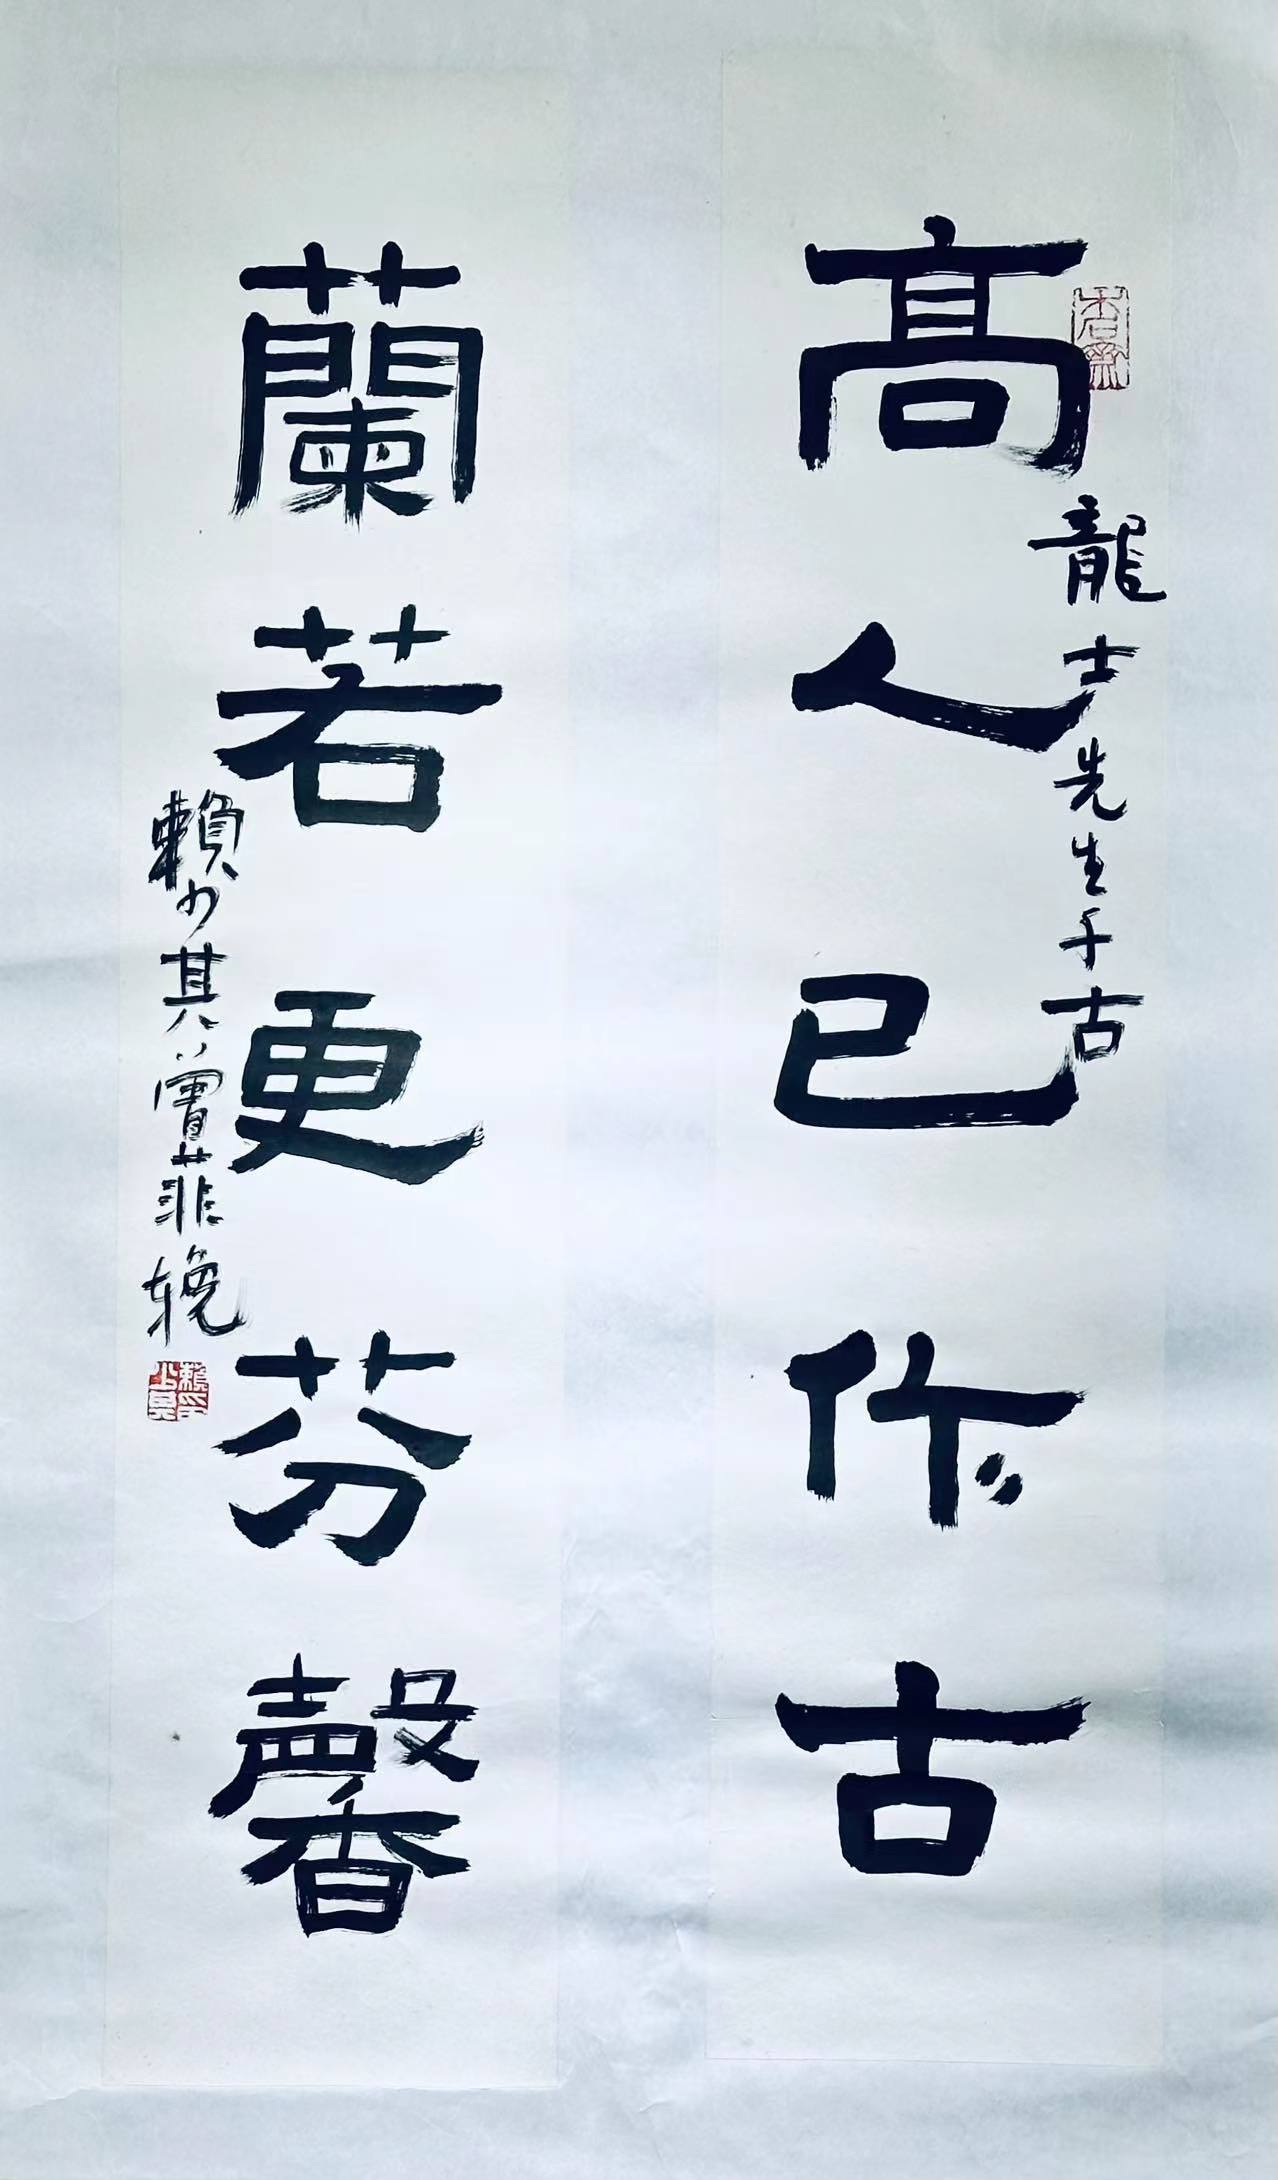 高人已作古
龍士先生千古
蘭若更芬馨
賴少其曾菲挽